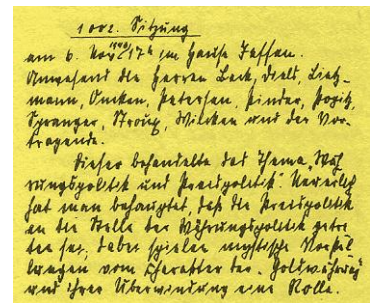 1002. Sitzung
am 6. Nov. 1940 17h im Hause Jessen.
Anwesend die Herren Beck, Diels, Lietz-
mann, Oncken, Petersen, Pinder, Popitz,
Spranger, Stroux, Wilcken und der Vor-
tragende.
Dieser behandelte das Thema „Wäh
rungspolitik und Preispolitik". Neuerlich
hat man behauptet, daß die Preispolitik
an die Stelle der Währungspolitik getre
ten sei, dabei spielen mystische Vorstel
lungen vom Charakter der Goldwährung
und ihrer Überwindung eine Rolle.